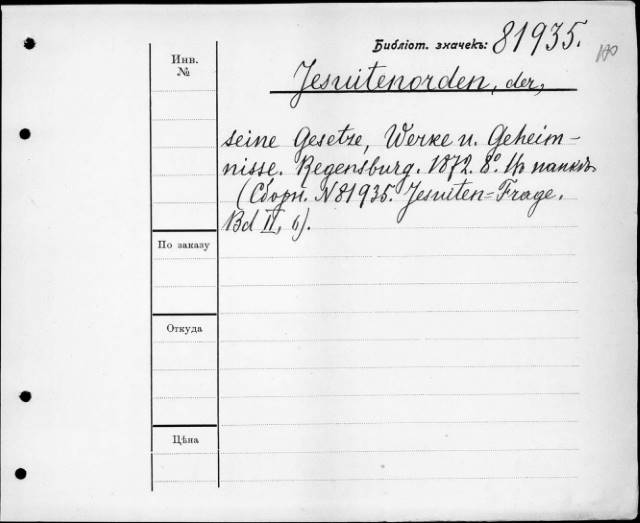 Библіот. значекъ: 81935.
Инв.
№
Jesuitenorden, der,
seine Gesetze, Werke u. Geheim-
nisse. Regensburg. 1872. 8º.
(Сборн. N 81935. Jesuiten=Frage.
Bd II, 6).
По заказу
Откуда
Цѣна